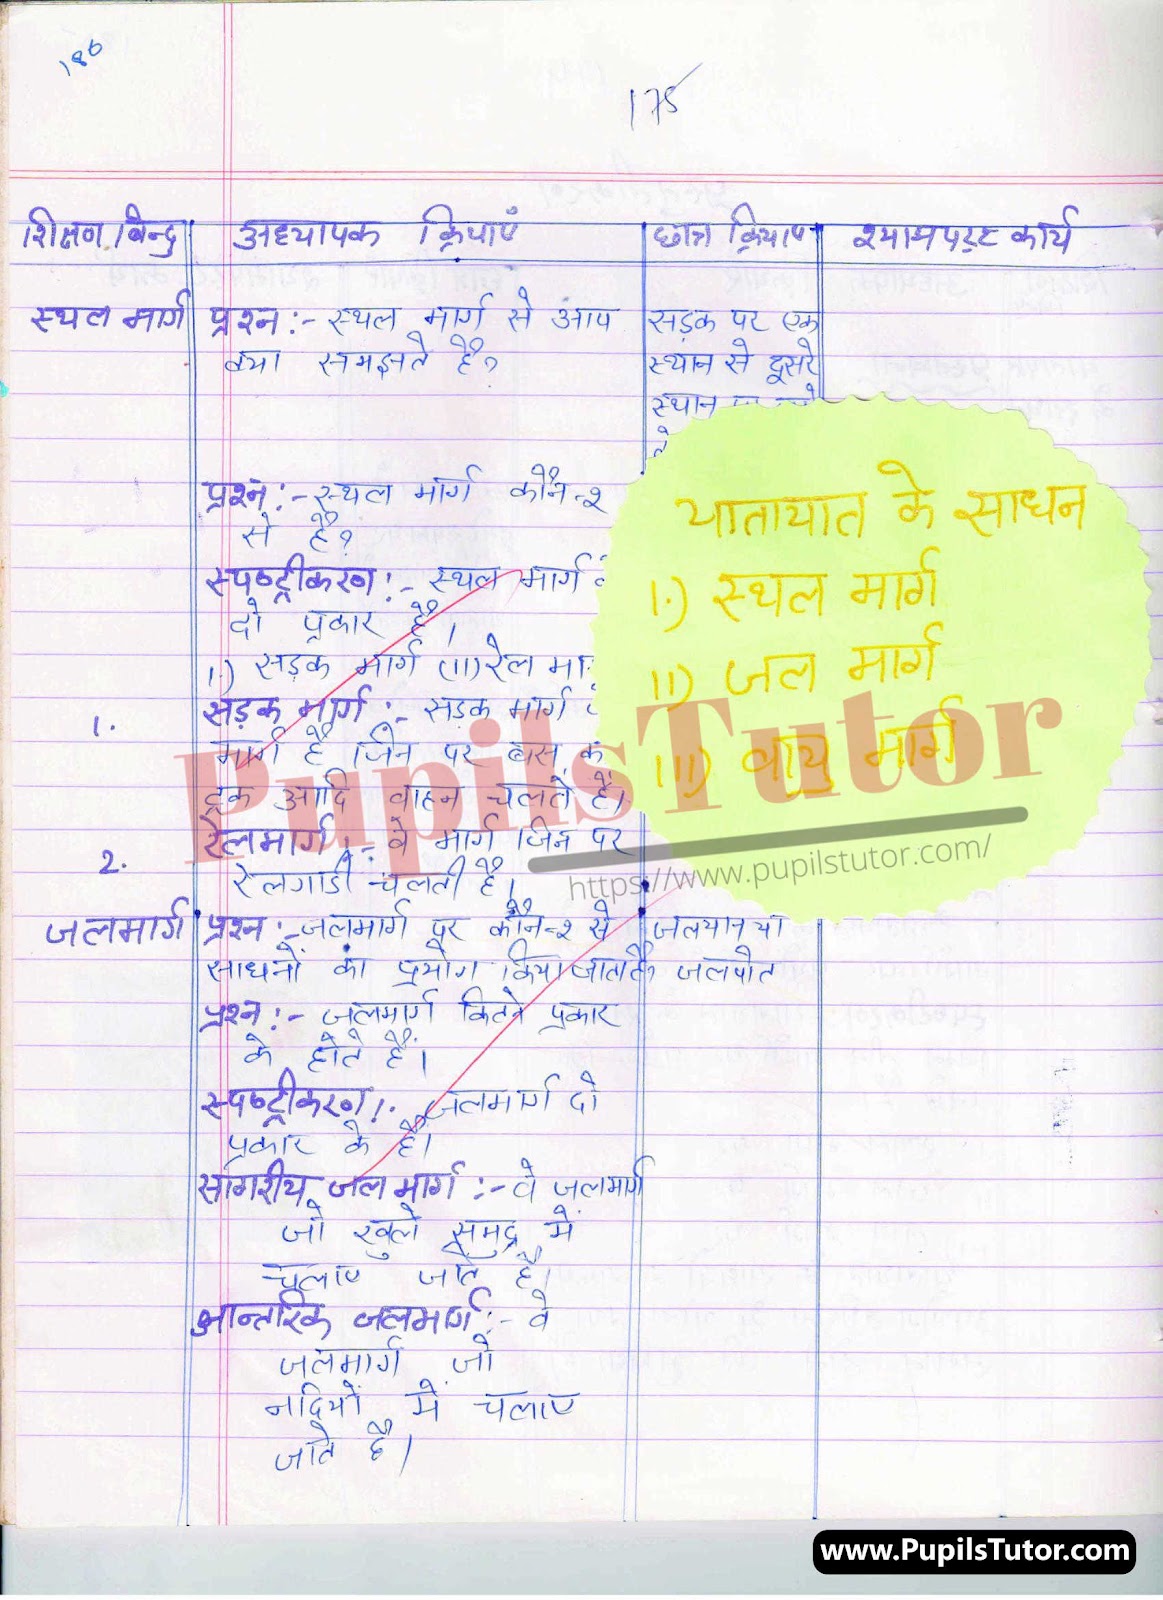 186
175
शिक्षण बिन्दु अध्यापक क्रियाएं छात्र क्रियाएं श्यामपट्ट कार्य
स्थल मार्ग
प्रश्न:- स्थल मार्ग से आप
क्या समझते है?
सड़क पर एक
स्थान से दूसरे
स्थान
प्रश्न:- स्थल मार्ग कौन-२
से है?
स्पष्ट्रीकरण:- स्थल मार्ग
दो प्रकार है।
I.) सड़क मार्ग (II) रेल
1.
सड़क मार्ग:- सड़क मार्ग
मार्ग है जिन पर बस
ट्रक आदि वाहन चलते है।
2.
रेलमार्ग:- वे मार्ग जिन पर
रेलगाडी चलती है।
यातायात के साधन
I.) स्थल मार्ग
II) जल मार्ग
III) वायु मार्ग
PupilsTutor
https://www.pupilstutor.com/
जलमार्ग
प्रश्न:- जलमार्ग पर कौन-२ से
साधनों का प्रयोग किया जाता है?
जलयान या
जलपोत
प्रश्न:- जलमार्ग कितने प्रकार
के होते हैं।
स्पष्ट्रीकरण:- जलमार्ग दो
प्रकार के है।
सागरीय जल मार्ग:- वे जलमार्ग
जो खुले समुद्र में
चलाए जाते है।
आन्तरिक जलमार्ग:- वे
जलमार्ग जो
नदियों में चलाए
जाते है।
www.PupilsTutor.com